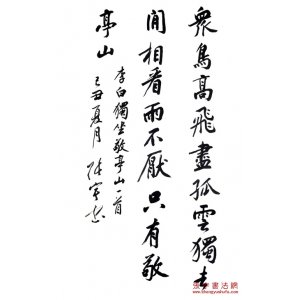 眾鳥高飛盡孤雲獨去
閒相看兩不厭只有敬
亭山
李白獨坐敬亭山一首
己丑夏月
書法網